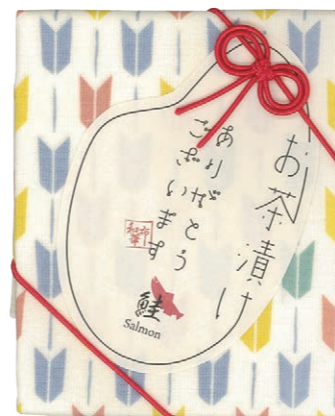 お茶漬け
ありがとう
ございます
鮭
Salmon